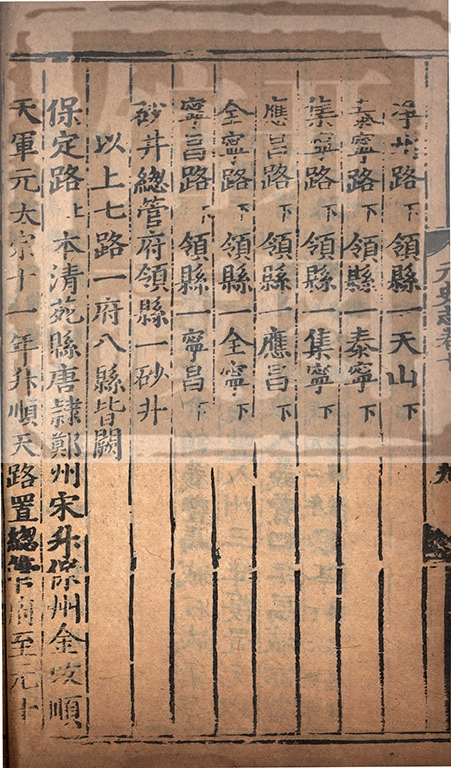 淨州路下領縣一天山下
泰寧路下領縣一泰寧下
集寧路下領縣一集寧下
應昌路下領縣一應昌下
全寧路下領縣一全寧下
寧昌路下領縣一寧昌下
砂井總管府領縣一砂井
以上七路一府八縣皆闕
保定路上本清苑縣唐隸鄭州宋升保州金改順
天軍元太宗十一年升順天路置總管府至元十
元史志卷十
九